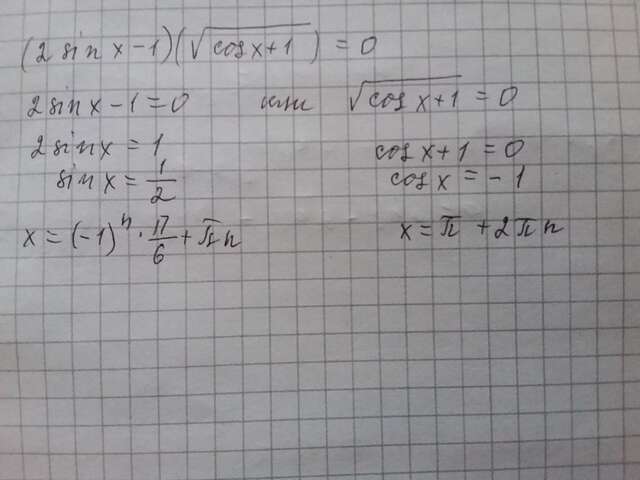 (2 sin x − 1)(√(cos x + 1)) = 0
2 sin x − 1 = 0 или √(cos x + 1) = 0
2 sin x = 1 cos x + 1 = 0
sin x = 1/2 cos x = − 1
x = (−1)^n · π/6 + πn x = π + 2πn